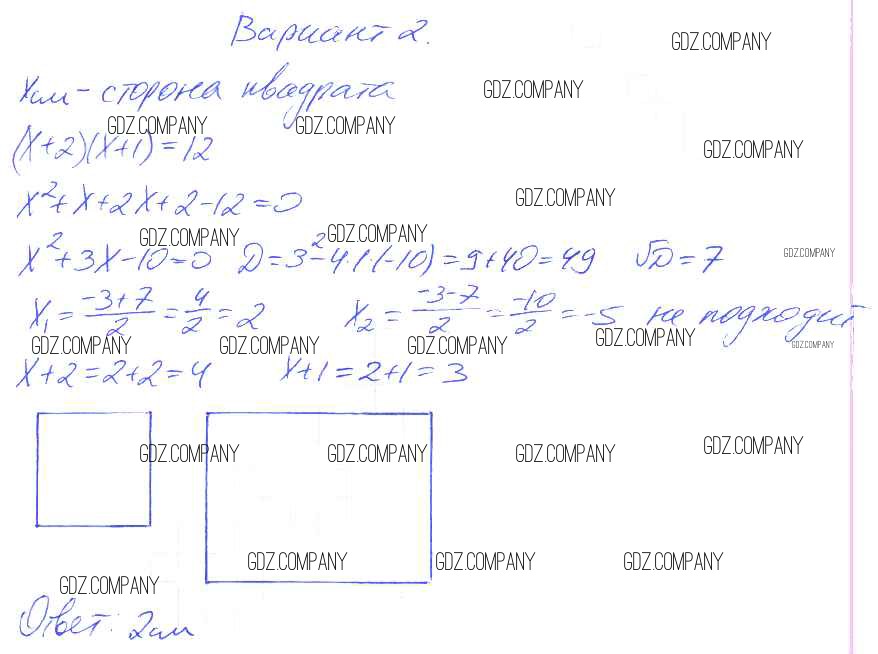 Вариант 2.
GDZ.COMPANY
xсм - сторона квадрата
GDZ.COMPANY
GDZ.COMPANY GDZ.COMPANY
(x+2)(x+1)=12
GDZ.COMPANY
x²+x+2x+2-12=0
GDZ.COMPANY
GDZ.COMPANY GDZ.COMPANY
x²+3x-10=0 D=3²-4·1·(-10)=9+40=49 √D=7
GDZ.COMPANY
x₁=(-3+7)/2=4/2=2 x₂=(-3-7)/2=-10/2=-5 не подходит
GDZ.COMPANY GDZ.COMPANY GDZ.COMPANY GDZ.COMPANY GDZ.COMPANY
x+2=2+2=4 x+1=2+1=3
GDZ.COMPANY GDZ.COMPANY GDZ.COMPANY GDZ.COMPANY
GDZ.COMPANY GDZ.COMPANY GDZ.COMPANY
GDZ.COMPANY
Ответ: 2см